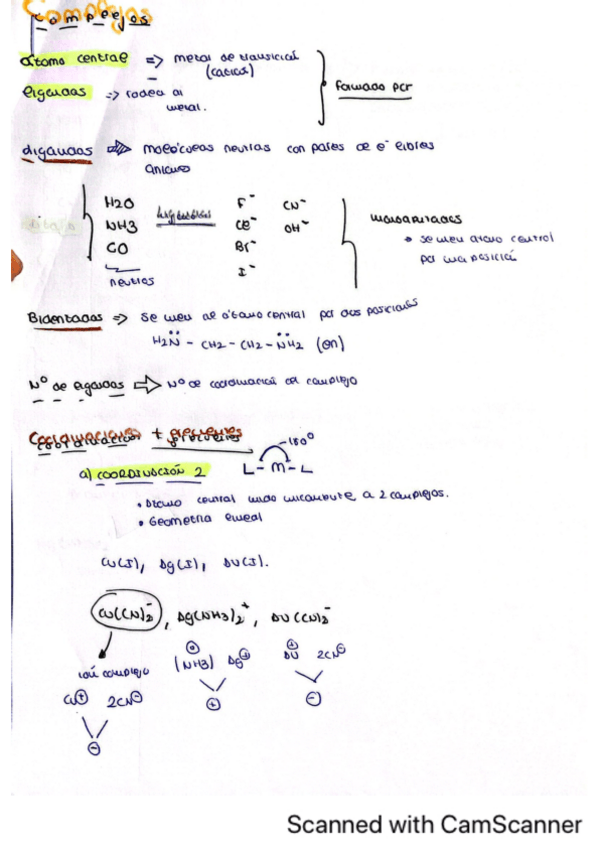 Complejos
átomo central => metal de transición
(catión)
ligandos => rodea al
metal.
formado por
ligandos => moléculas neutras con pares de e⁻ libres
H2O F⁻ CN⁻
NH3 Cl⁻ OH⁻
CO Br⁻
I⁻
neutros
monodentados
• se unen átomo central
por una posición
Bidentados => se unen al átomo central por dos posiciones
H2N̈ - CH2 - CH2 - N̈H2 (en)
Nº de ligandos => Nº de coordinación del complejo
Coordinaciones + frecuentes
180º
a) COORDINACIÓN 2 L - M - L
• Átomo central unido únicamente a 2 complejos.
• Geometría lineal
Cu(I), Ag(I), Au(I).
Cu(CN)2⁻, Ag(NH3)2⁺, Au(CN)2⁻
ión complejo
(NH3) Ag⊕ Au 2CN⊖
Cu⊕ 2CN⊖
⊕ ⊖
⊖
Scanned with CamScanner